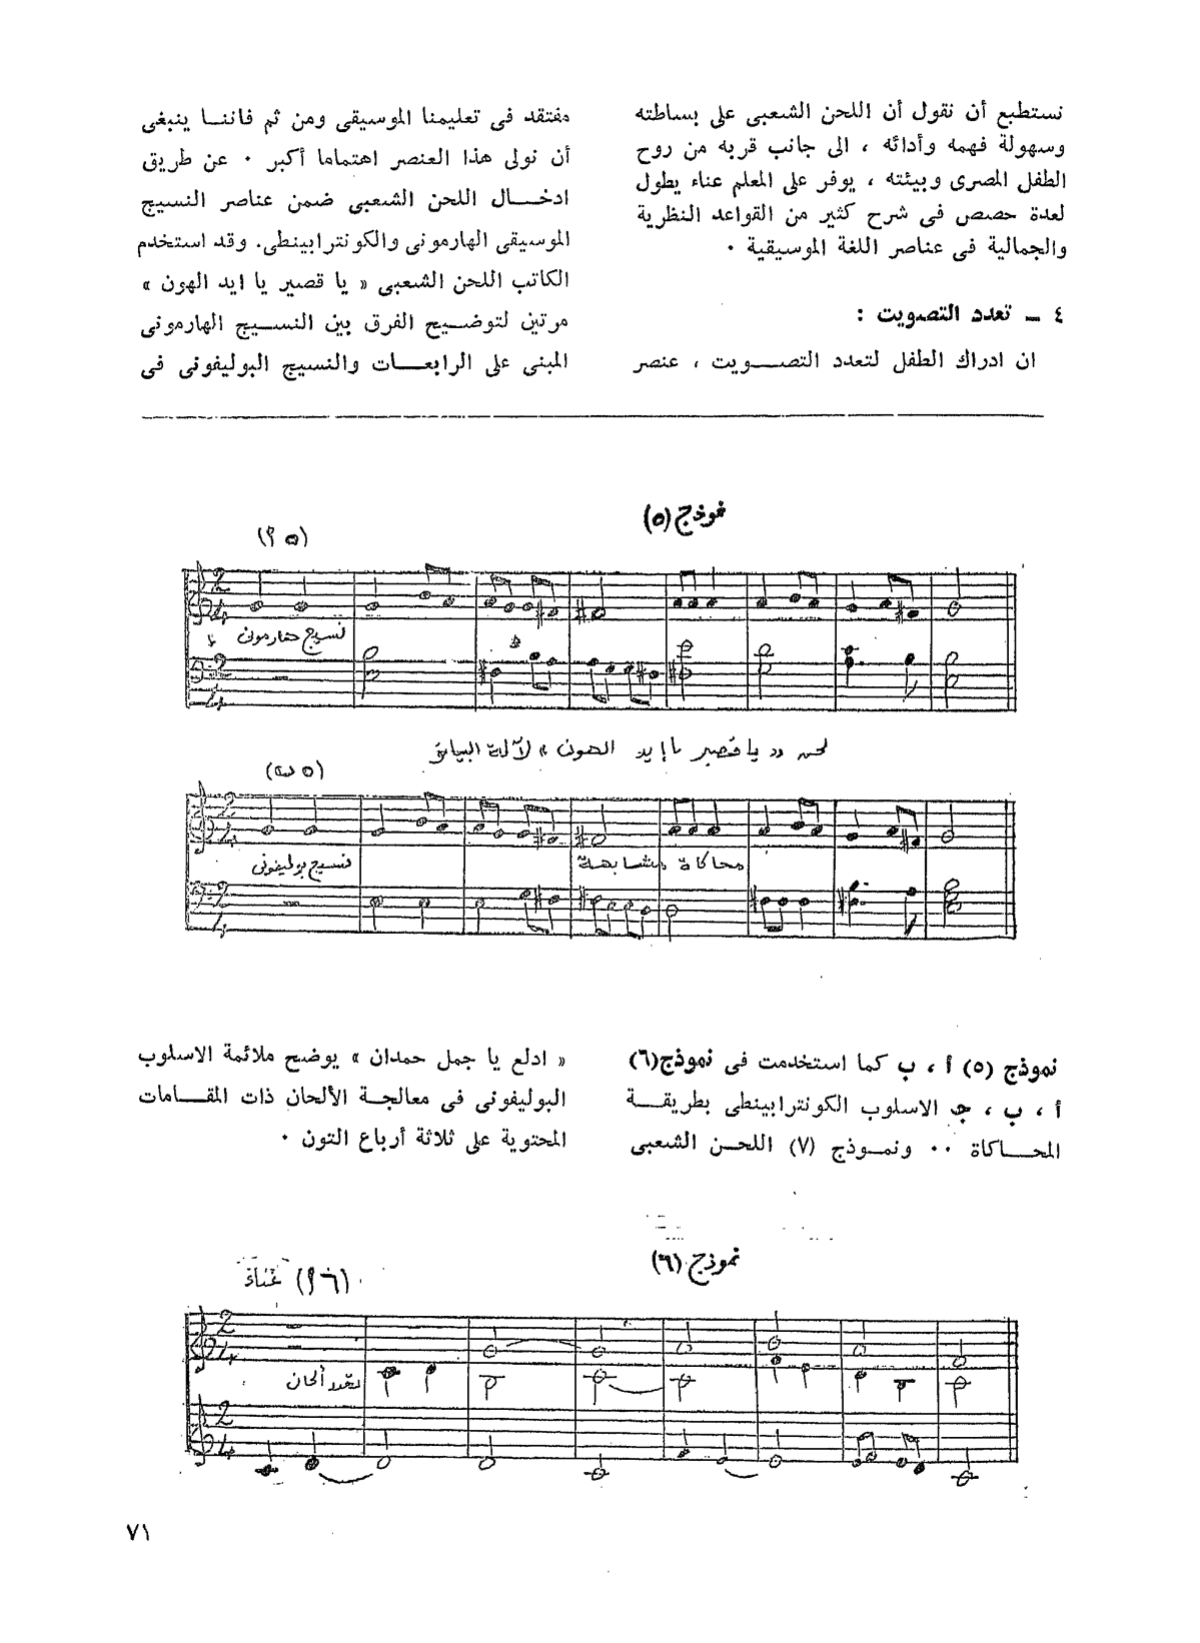 نستطيع أن نقول أن اللحن الشعبى على بساطته
وسهولة فهمه وأدائه ، الى جانب قربه من روح
الطفل المصرى وبيئته ، يوفر على المعلم عناء يطول
لعدة حصص فى شرح كثير من القواعد النظرية
والجمالية فى عناصر اللغة الموسيقية ٠
٤ ـ تعدد التصويت :
ان ادراك الطفل لتعدد التصـــويت ، عنصر
مفتقد فى تعليمنا الموسيقى ومن ثم فاننـا ينبغى
أن نولى هذا العنصر اهتماما أكبر ٠ عن طريق
ادخـــال اللحن الشعبى ضمن عناصر النسيج
الموسيقى الهارمونى والكونترابينطى. وقد استخدم
الكاتب اللحن الشعبى « يا قصير يا ايد الهون »
مرتين لتوضـيح الفرق بين النسـيج الهارمونى
المبنى على الرابعـــات والنسيج البوليفونى فى
نموذج (٥)
(٥ أ)
نسيج هارمونى
لحن « يا قصير يا إيد الهون » لآلة البيانو
(٥ ب)
نسيج بوليفونى
محاكاة متشابهة
نموذج (٥) أ ، ب كما استخدمت فى نموذج(٦)
أ ، ب ، جـ الاسلوب الكونترابينطى بطريقـــة
المحـــاكاة ٠٠ ونمــوذج (٧) اللحــن الشعبى
« ادلع يا جمل حمدان » يوضح ملائمة الاسلوب
البوليفونى فى معالجـة الألحان ذات المقـــامات
المحتوية على ثلاثة أرباع التون ٠
نموذج (٦)
(٦ أ) غناء
تعدد ألحان
٧١